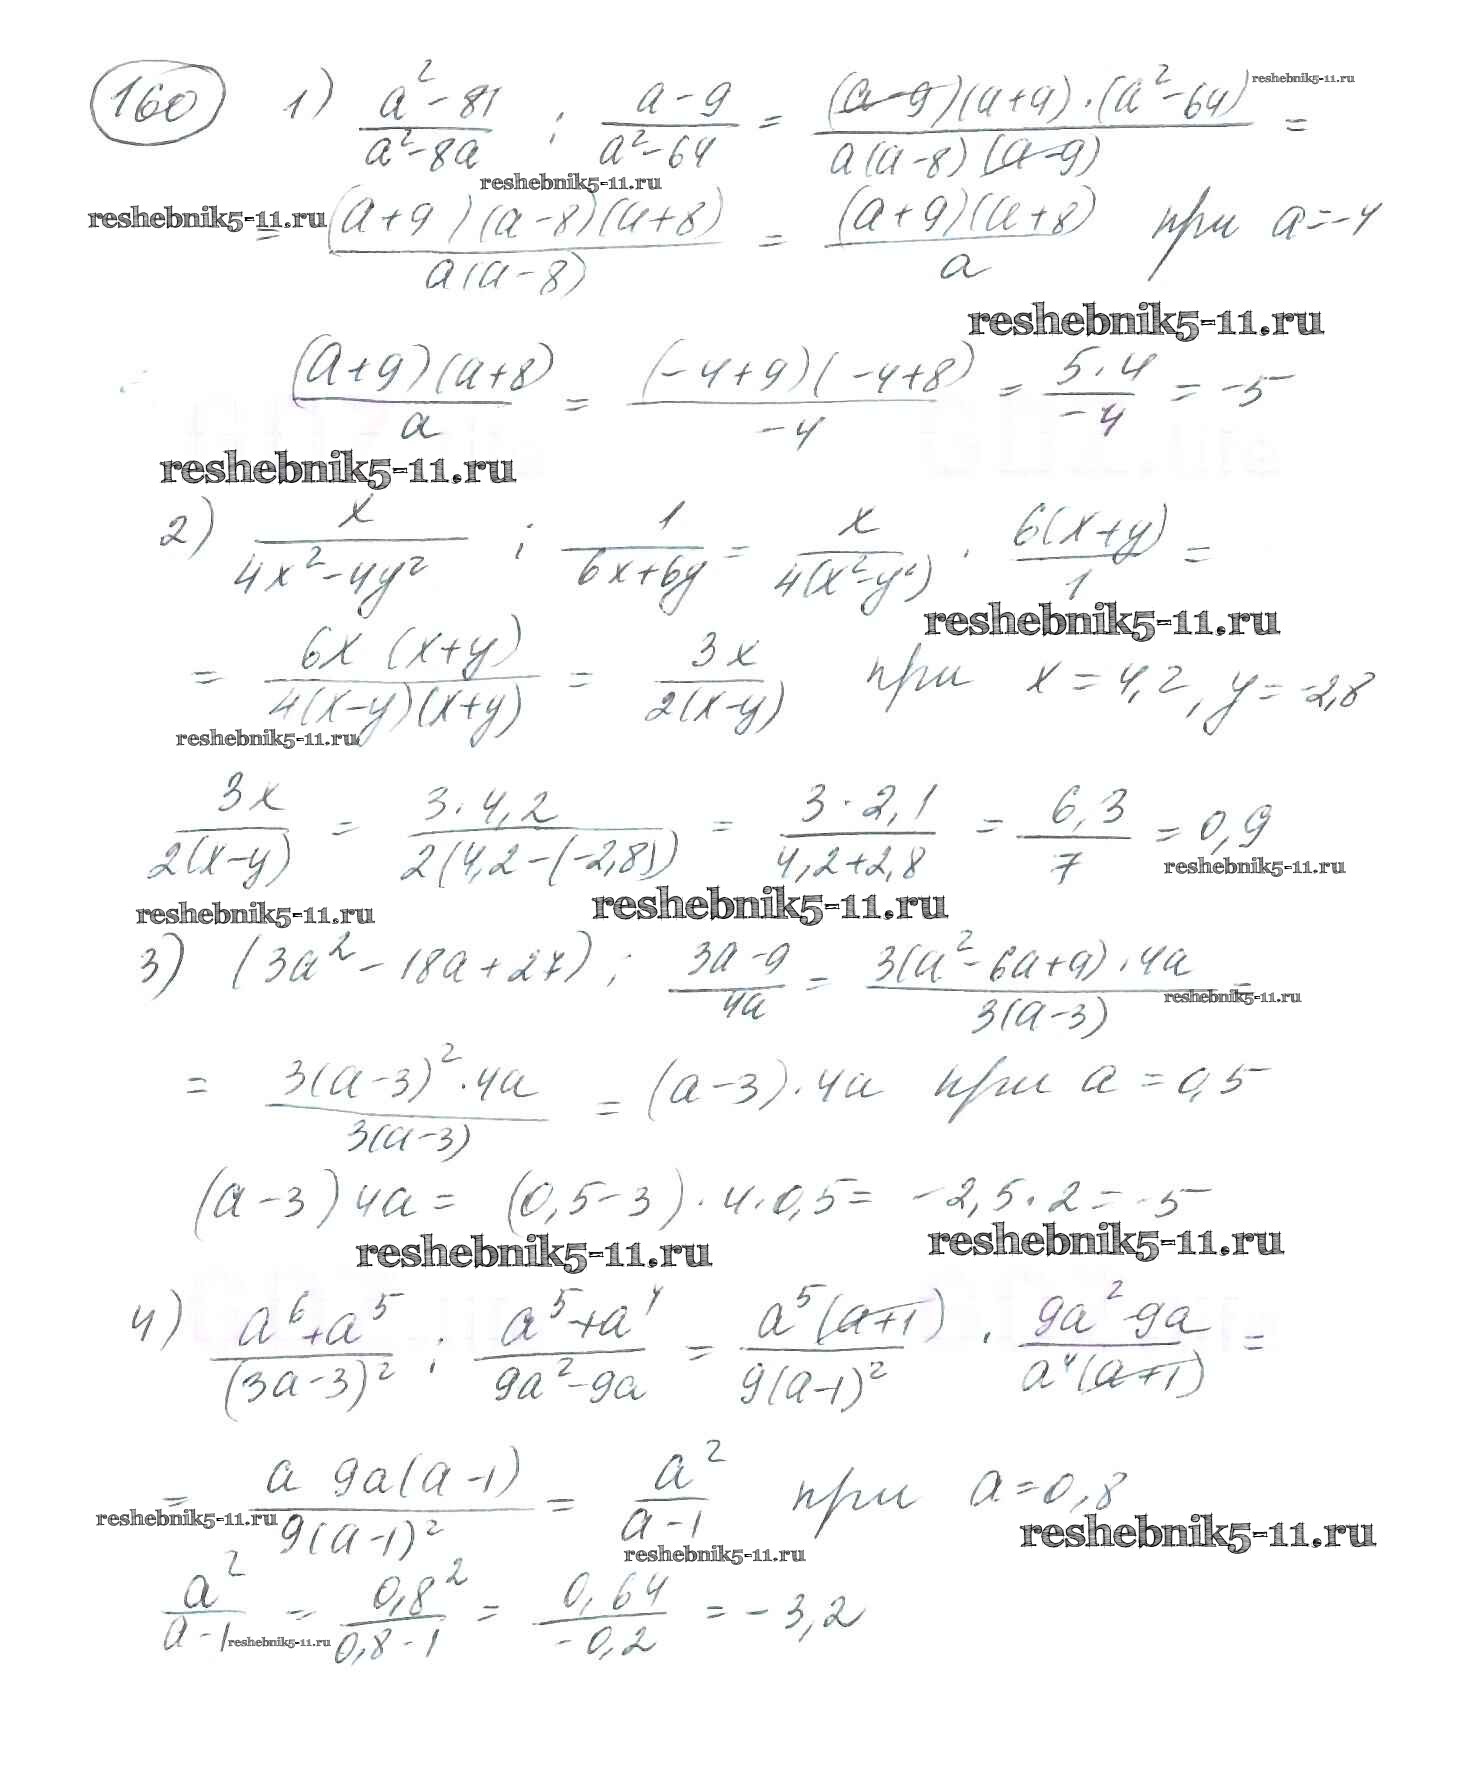 160 1) (a²-81)/(a²-8a) : (a-9)/(a²-64) = ((a-9)(a+9)·(a²-64))/(a(a-8)(a-9)) = reshebnik5-11.ru
reshebnik5-11.ru
reshebnik5-11.ru
= ((a+9)(a-8)(a+8))/(a(a-8)) = ((a+9)(a+8))/a при a=-4
reshebnik5-11.ru
((a+9)(a+8))/a = ((-4+9)(-4+8))/(-4) = (5·4)/(-4) = -5
reshebnik5-11.ru
2) x/(4x²-4y²) : 1/(6x+6y) = x/(4(x²-y²)) · (6(x+y))/1 =
reshebnik5-11.ru
= (6x(x+y))/(4(x-y)(x+y)) = 3x/(2(x-y)) при x=4,2, y=-2,8
reshebnik5-11.ru
3x/(2(x-y)) = (3·4,2)/(2(4,2-(-2,8))) = (3·2,1)/(4,2+2,8) = 6,3/7 = 0,9
reshebnik5-11.ru
reshebnik5-11.ru reshebnik5-11.ru
3) (3a²-18a+27) : (3a-9)/4a = (3(a²-6a+9)·4a)/(3(a-3)) =
reshebnik5-11.ru
= (3(a-3)²·4a)/(3(a-3)) = (a-3)·4a при a=0,5
(a-3)4a = (0,5-3)·4·0,5 = -2,5·2 = -5
reshebnik5-11.ru reshebnik5-11.ru
4) (a⁶+a⁵)/((3a-3)²) : (a⁵+a⁴)/(9a²-9a) = (a⁵(a+1))/(9(a-1)²) · (9a²-9a)/(a⁴(a+1)) =
= (a 9a(a-1))/(9(a-1)²) = a²/(a-1) при a=0,8
reshebnik5-11.ru reshebnik5-11.ru
reshebnik5-11.ru
a²/(a-1) = 0,8²/(0,8-1) = 0,64/(-0,2) = -3,2
reshebnik5-11.ru